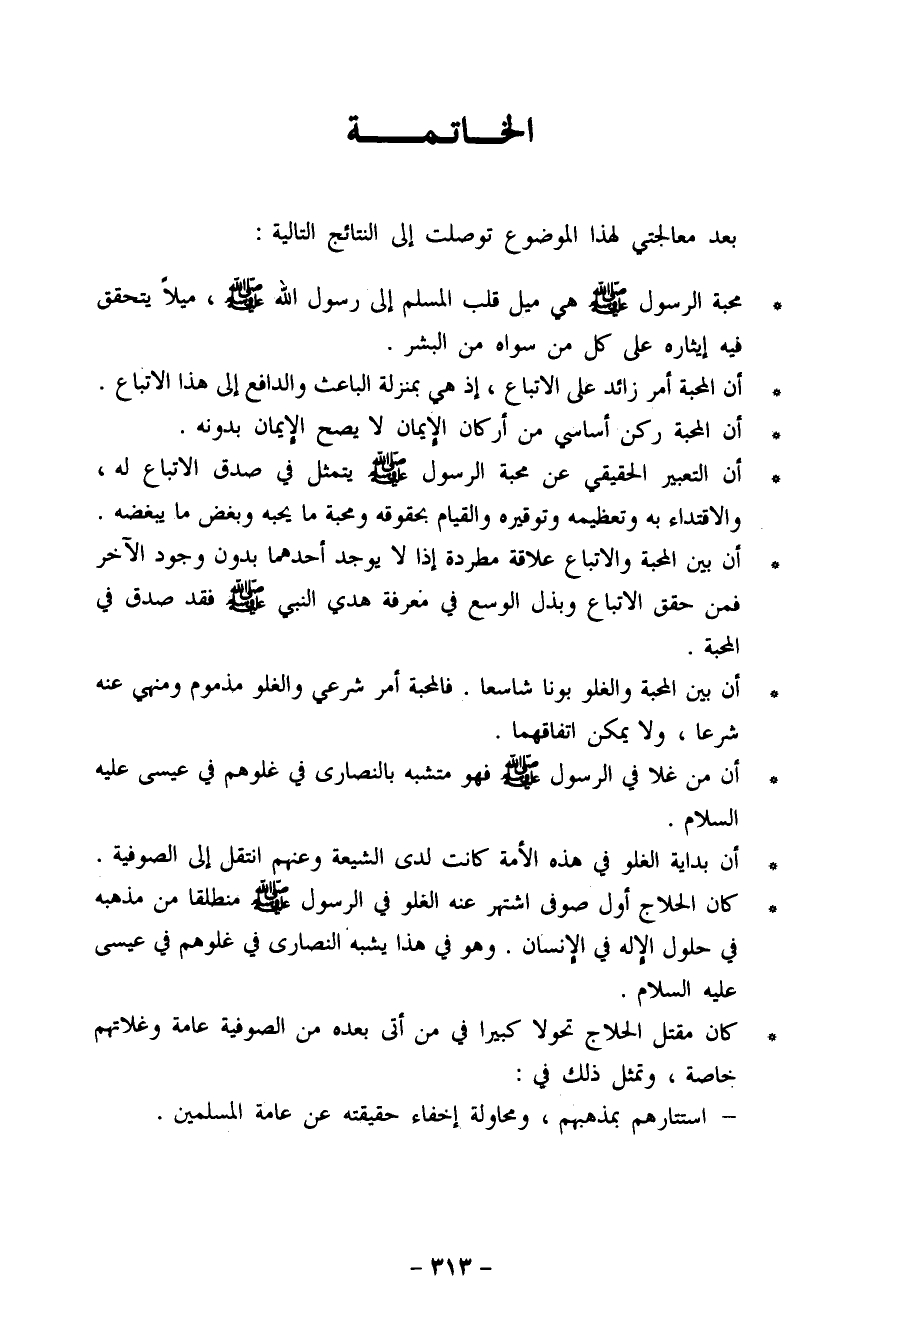 الخـــاتـمـــــة
بعد معالجتي لهذا الموضوع توصلت إلى النتائج التالية :
* محبة الرسول ﷺ هي ميل قلب المسلم إلى رسول الله ﷺ ، ميلاً يتحقق
فيه إيثاره على كل من سواه من البشر .
* أن المحبة أمر زائد على الاتباع ، إذ هي بمنزلة الباعث والدافع إلى هذا الاتباع .
* أن المحبة ركن أساسي من أركان الإيمان لا يصح الإيمان بدونه .
* أن التعبير الحقيقي عن محبة الرسول ﷺ يتمثل في صدق الاتباع له ،
والاقتداء به وتعظيمه وتوقيره والقيام بحقوقه ومحبة ما يحبه وبغض ما يبغضه .
* أن بين المحبة والاتباع علاقة مطردة إذا لا يوجد أحدهما بدون وجود الآخر
فمن حقق الاتباع وبذل الوسع في معرفة هدي النبي ﷺ فقد صدق في
المحبة .
* أن بين المحبة والغلو بونا شاسعا . فالمحبة أمر شرعي والغلو مذموم ومنهي عنه
شرعا ، ولا يمكن اتفاقهما .
* أن من غلا في الرسول ﷺ فهو متشبه بالنصارى في غلوهم في عيسى عليه
السلام .
* أن بداية الغلو في هذه الأمة كانت لدى الشيعة وعنهم انتقل إلى الصوفية .
* كان الحلاج أول صوفى اشتهر عنه الغلو في الرسول ﷺ منطلقا من مذهبه
في حلول الإله في الإنسان . وهو في هذا يشبه النصارى في غلوهم في عيسى
عليه السلام .
* كان مقتل الحلاج تحولا كبيرا في من أتى بعده من الصوفية عامة وغلاتهم
خاصة ، وتمثل ذلك في :
– استتارهم بمذهبهم ، ومحاولة إخفاء حقيقته عن عامة المسلمين .
- ٣١٣ -